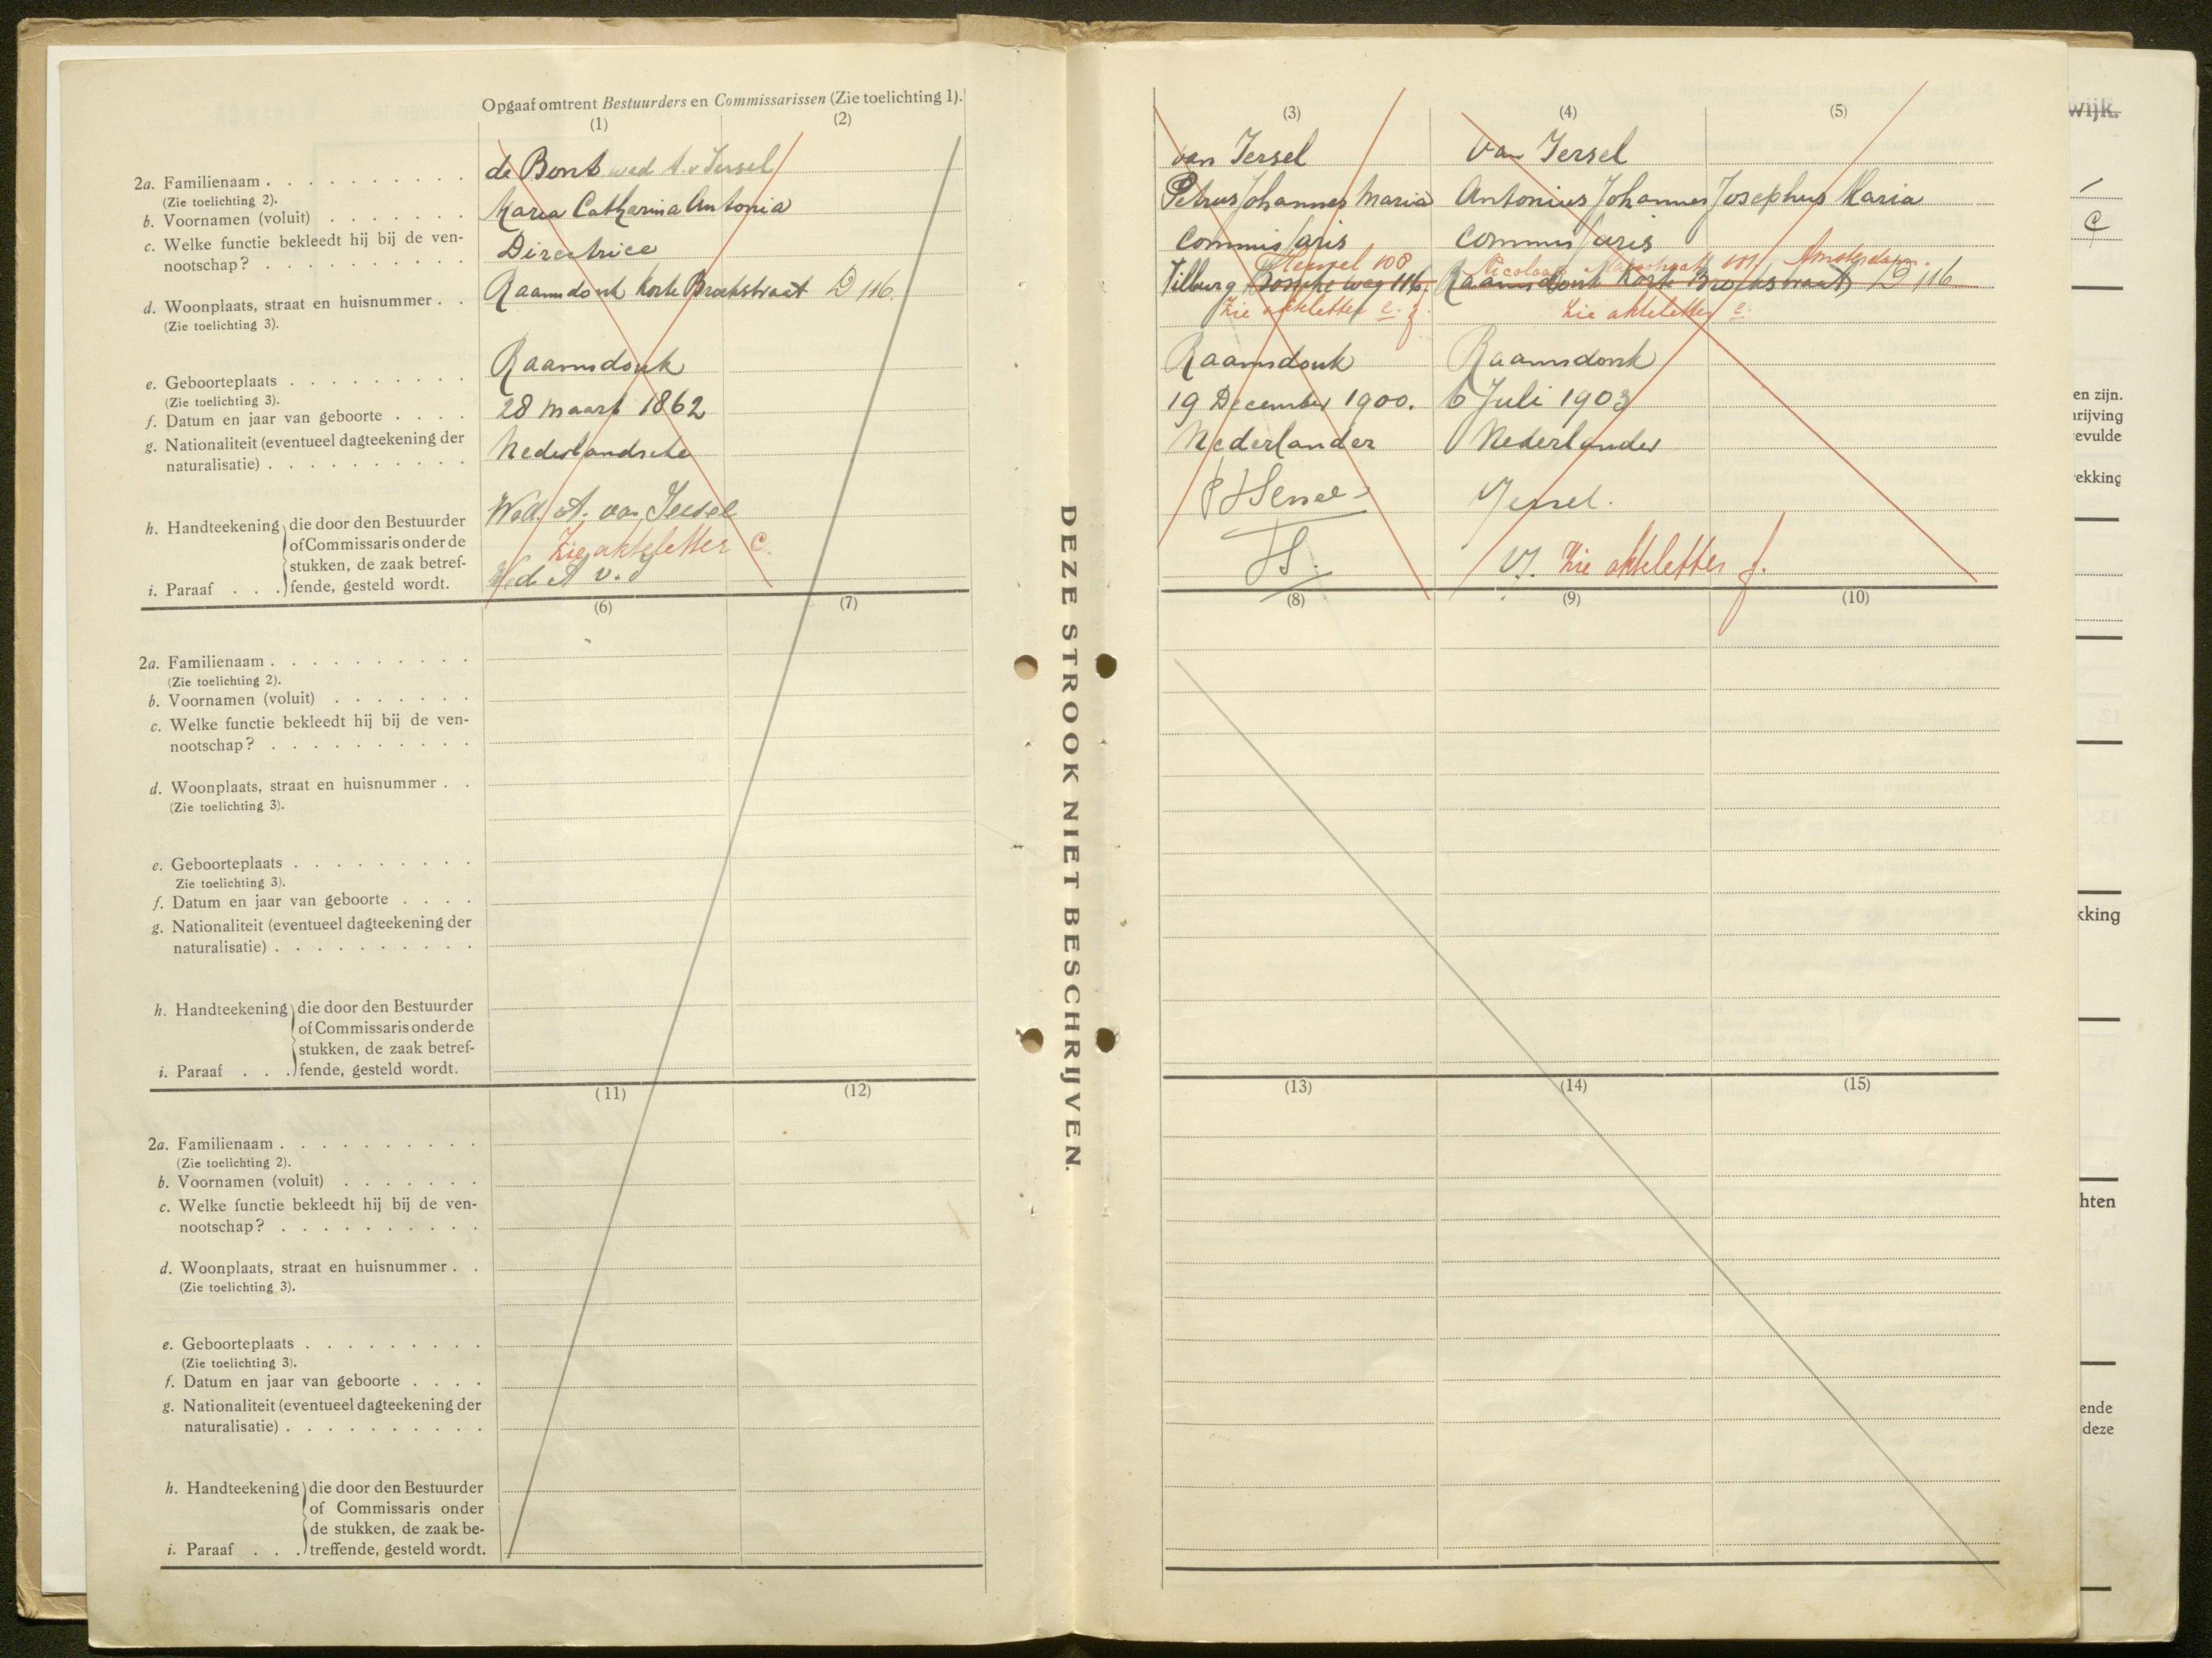 Opgaaf omtrent Bestuurders en Commissarissen (Zie toelichting 1).
(1)
(2)
2a. Familienaam . . . . . . . . . .
(Zie toelichting 2).
de Bont wed A. v Iersel
b. Voornamen (voluit) . . . . . . .
Maria Catharina Antonia
c. Welke functie bekleedt hij bij de ven-
nootschap? . . . . . . . . . .
Directrice
d. Woonplaats, straat en huisnummer . .
(Zie toelichting 3).
Raamsdonk Korte Broekstraat D 116.
e. Geboorteplaats . . . . . . . . .
(Zie toelichting 3).
Raamsdonk
f. Datum en jaar van geboorte . . . .
28 Maart 1862
g. Nationaliteit (eventueel dagteekening der
naturalisatie) . . . . . . . . . .
Nederlandsche
h. Handteekening die door den Bestuurder
of Commissaris onder de
stukken, de zaak betref-
i. Paraaf . . . fende, gesteld wordt.
Wed. A. van Iersel
Zie akteletter C.
Wed. A v. I
(6)
(7)
2a. Familienaam . . . . . . . . . .
(Zie toelichting 2).
b. Voornamen (voluit) . . . . . . .
c. Welke functie bekleedt hij bij de ven-
nootschap? . . . . . . . . . .
d. Woonplaats, straat en huisnummer . .
(Zie toelichting 3).
e. Geboorteplaats . . . . . . . . .
Zie toelichting 3).
f. Datum en jaar van geboorte . . . .
g. Nationaliteit (eventueel dagteekening der
naturalisatie) . . . . . . . . . .
h. Handteekening die door den Bestuurder
of Commissaris onder de
stukken, de zaak betref-
i. Paraaf . . . fende, gesteld wordt.
(11)
(12)
2a. Familienaam . . . . . . . . . .
(Zie toelichting 2).
b. Voornamen (voluit) . . . . . . .
c. Welke functie bekleedt hij bij de ven-
nootschap? . . . . . . . . . .
d. Woonplaats, straat en huisnummer . .
(Zie toelichting 3).
e. Geboorteplaats . . . . . . . . .
(Zie toelichting 3).
f. Datum en jaar van geboorte . . . .
g. Nationaliteit (eventueel dagteekening der
naturalisatie) . . . . . . . . . .
h. Handteekening die door den Bestuurder
of Commissaris onder
de stukken, de zaak be-
i. Paraaf . . . treffende, gesteld wordt.
DEZE STROOK NIET BESCHRIJVEN.
(3)
(4)
(5)
van Iersel
Petrus Johannes Maria
Commissaris
Heuvel 108
Tilburg Bossche weg 116.
Zie akteletter e. g.
Raamsdonk
19 December 1900.
Nederlander
van Iersel
Antonius Johannes Josephus Maria
Commissaris
Nicolaas Maesstraat 101 Amsterdam.
Raamsdonk Korte Broekstraat D 116
Zie akteletter e.
Raamsdonk
6 Juli 1903
Nederlander
VIersel.
VI. Zie akteletter f.
(8)
(9)
(10)
(13)
(14)
(15)
wijk.
C
en zijn.
rijving
evulde
ekking
kking
hten
ende
deze